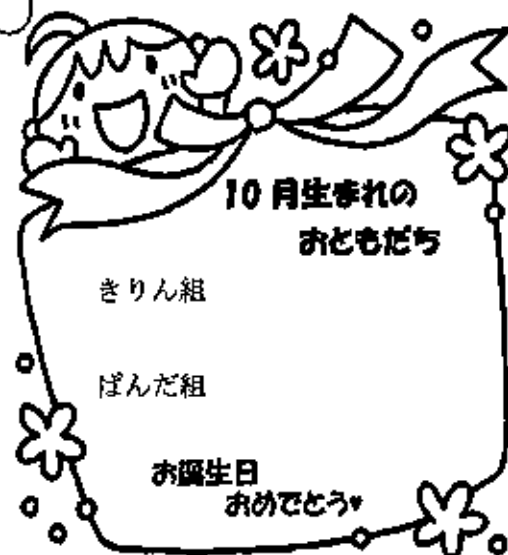 10月生まれの
おともだち
きりん組
ぱんだ組
お誕生日
おめでとう♥